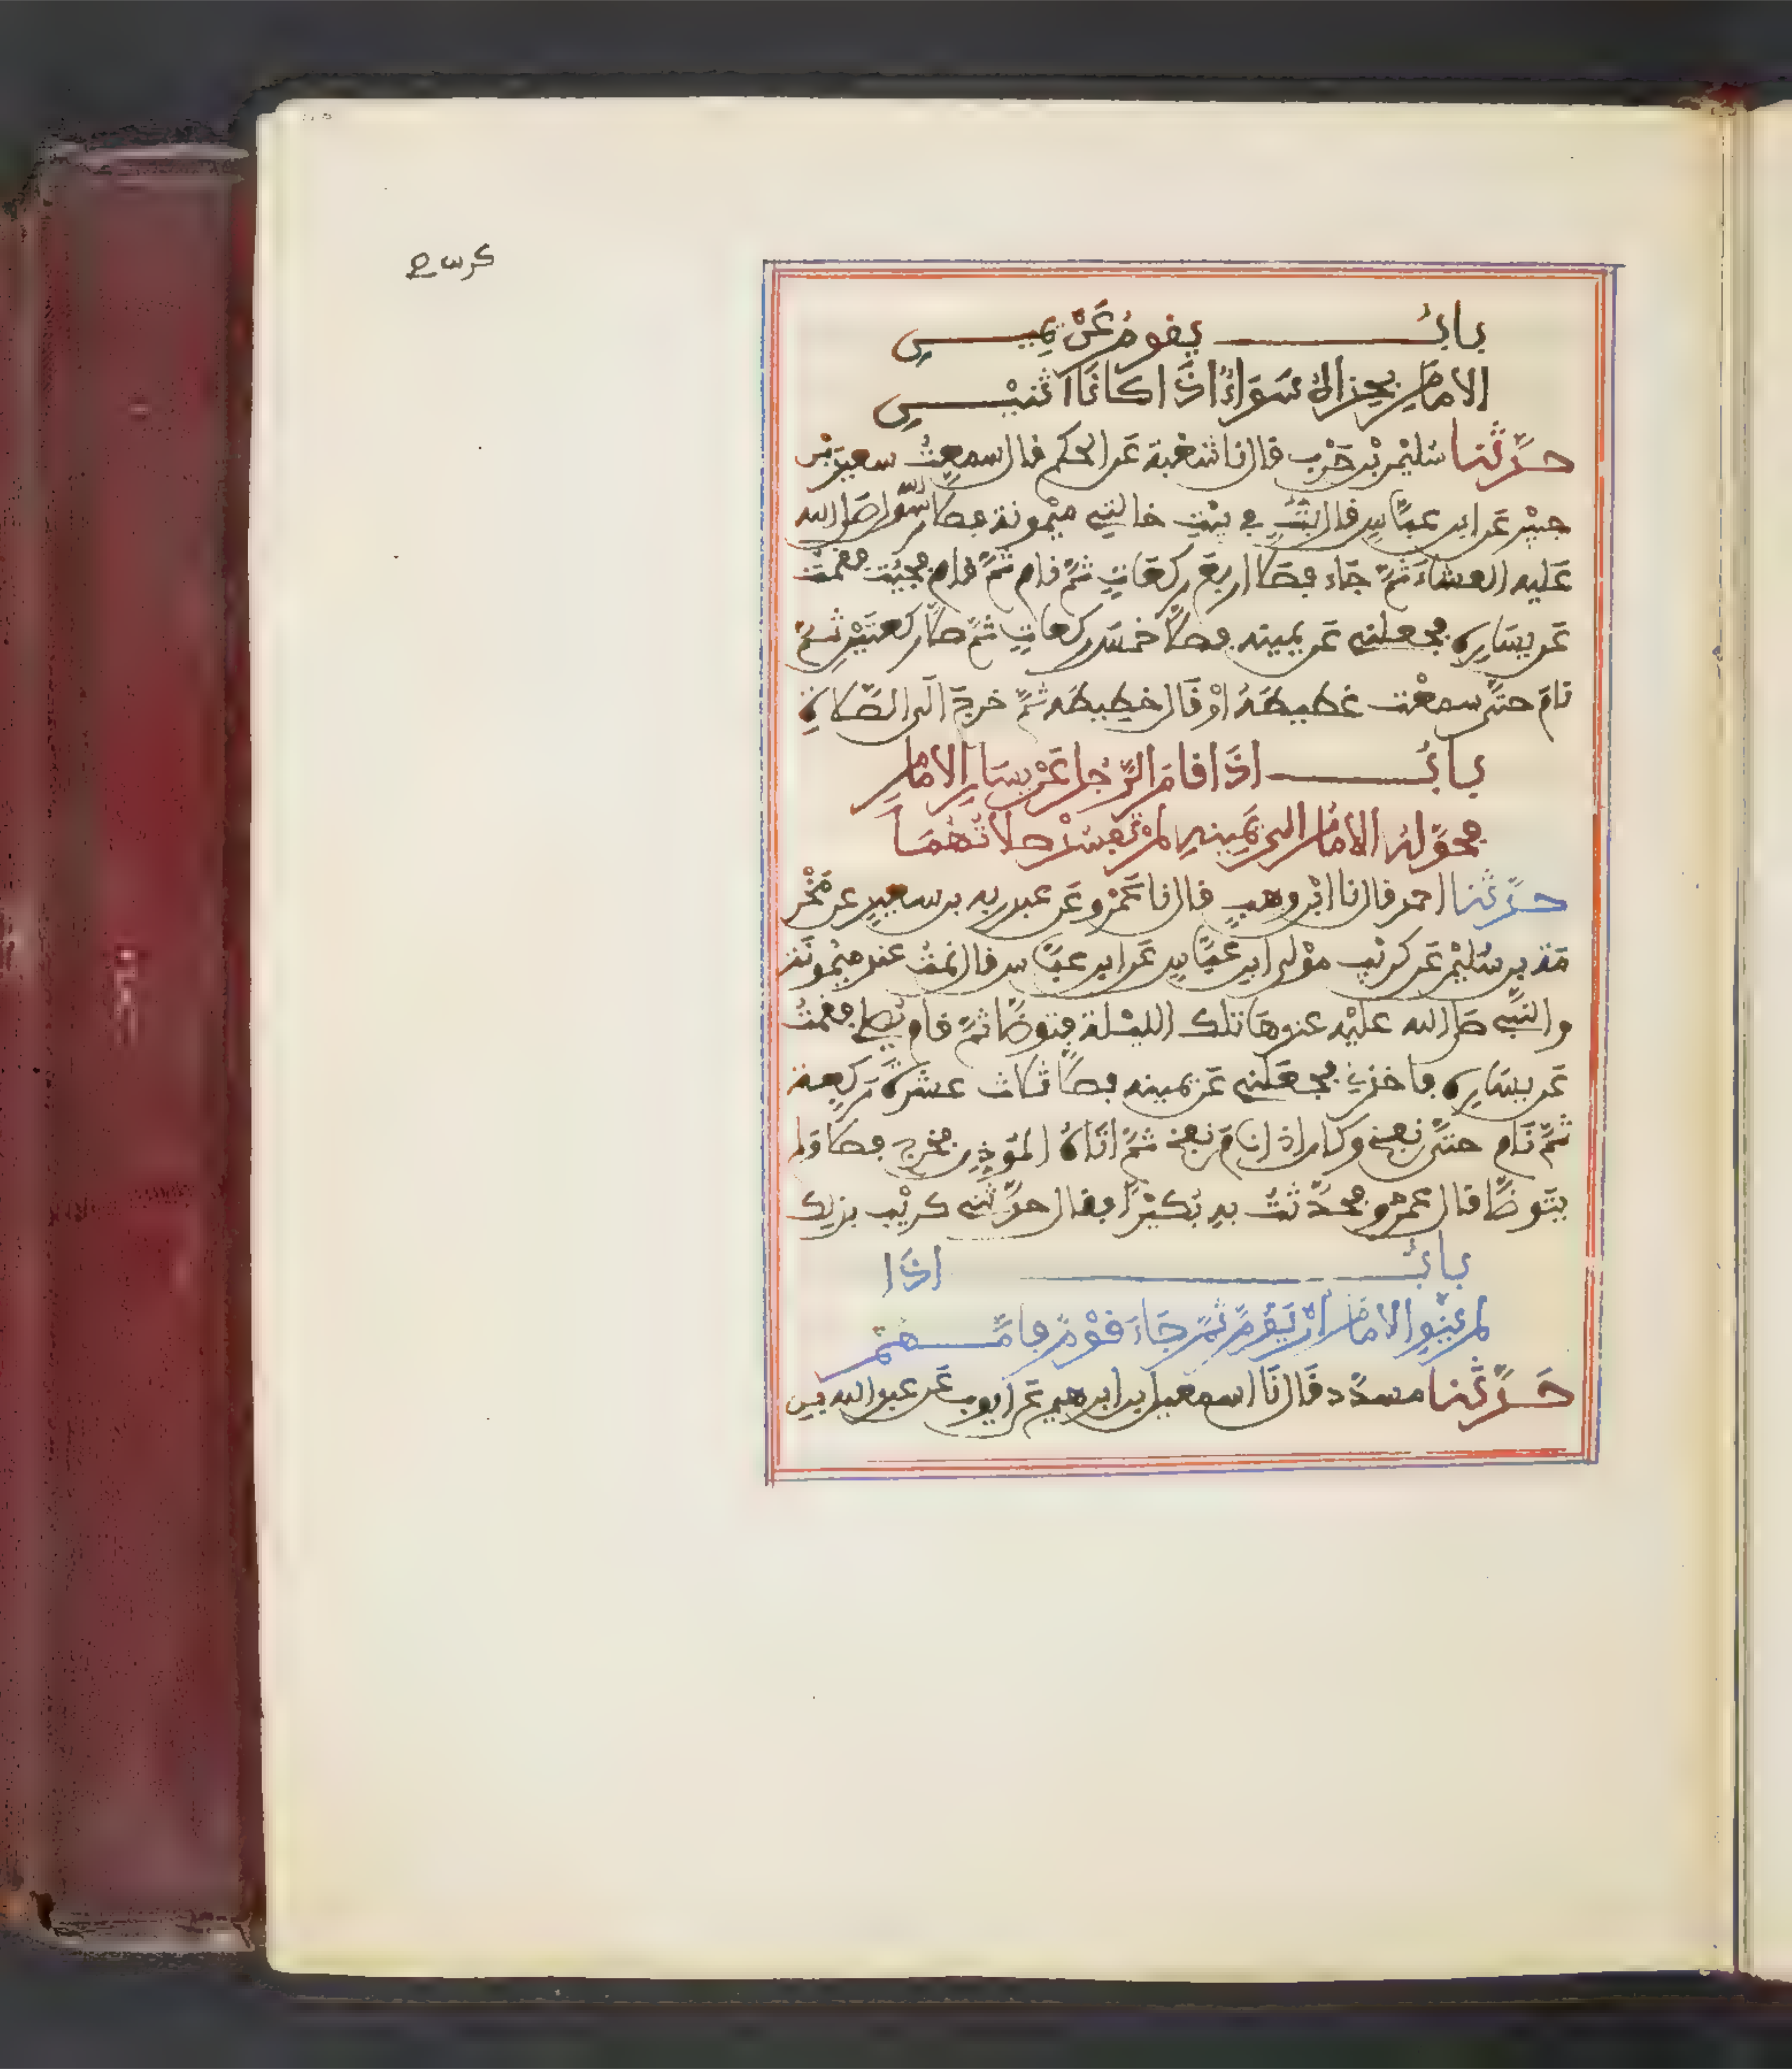 كرس 5
باب يقوم عن يمين
الامام بحذائه سواء اذا كانا اثنين
حدثنا سليمن بن حرب قال نا شعبة عن الحكم قال سمعت سعيد بن
جبير عن ابن عباس قال بت في بيت خالتي ميمونة فصلى رسول الله صلى الله
عليه العشاء ثم جاء فصلى اربع ركعات ثم نام ثم قام فجيت فقمت
عن يساره فجعلني عن يمينه فصلى خمس ركعات ثم صلى ركعتين ثم
نام حتى سمعت غطيطه او قال خطيطه ثم خرج الى الصلاة
باب اذا قام الرجل عن يسار الامام
فحوله الامام الى يمينه لم تفسد صلاتهما
حدثنا احمد قال نا ابن وهب قال نا عمرو عن عبد ربه بن سعيد عن مخر
مة بن سليمن عن كريب مولى ابن عباس عن ابن عباس قال نمت عند ميمونة
والنبي صلى الله عليه عندها تلك الليلة فتوضا ثم قام يصلي فقمت
عن يساره فاخذني فجعلني عن يمينه فصلى ثلاث عشرة ركعة
ثم نام حتى نفخ وكان اذا نام نفخ ثم اتاه الموذن فخرج فصلى ولم
يتوضا قال عمرو فحدثت به بكيرا فقال حدثني كريب بذلك
باب اذا
لم ينو الامام ان يؤم ثم جاء قوم فامهم
حدثنا مسدد قال نا اسمعيل بن ابرهيم عن ايوب عن عبد الله بن